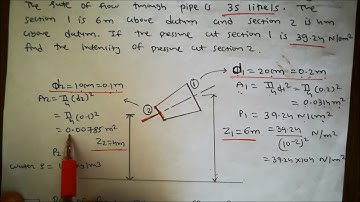 The rate of flow through pipe is 35 litre/s. The
section 1 is 6m above datum and section 2 is 4m
above datum. If the pressure at section 1 is 39.24 N/cm²
find the intensity of pressure at section 2.
d₂ = 10cm = 0.1m
A₂ = π/4 (d₂)²
= π/4 (0.1)²
= 0.00785 m²
P₂
Z₂ = 4m
②
①
d₁ = 20cm = 0.2m
A₁ = π/4 d₁² = π/4 (0.2)²
= 0.0314 m²
P₁ = 39.24 N/cm²
Z₁ = 6m = 39.24/(10⁻²)² N/m²
= 39.24×10⁴ N/m²